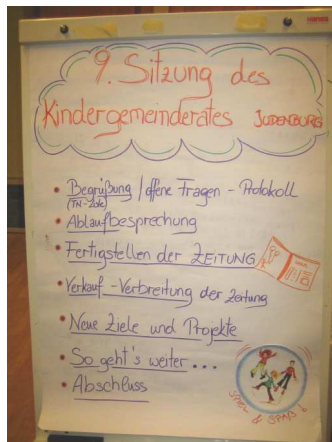 9. Sitzung des
Kindergemeinderates JUDENBURG
• Begrüßung / offene Fragen - Protokoll
• Ablaufbesprechung
• Fertigstellen der ZEITUNG
• Verkauf - Verbreitung der Zeitung
• Neue Ziele und Projekte
• So geht's weiter ...
• Abschluss
Spiel & SPAß!